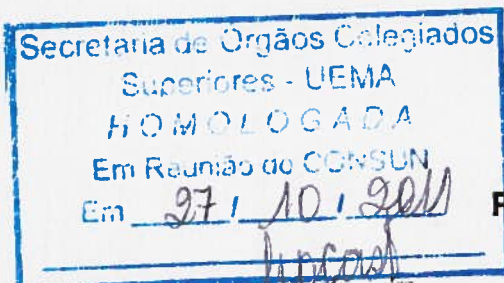 Secretaria de Orgãos Colegiados
Superiores - UEMA
HOMOLOGADA
Em Reunião do CONSUN
Em 27 / 10 / 2011